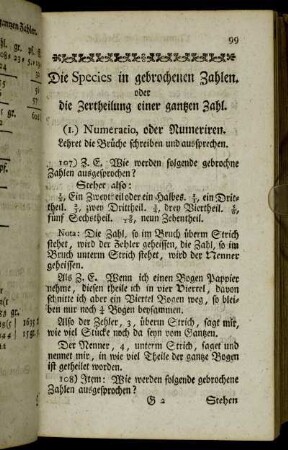 99
Die Species in gebrochenen Zahlen.
oder
die Zertheilung einer gantzen Zahl.
(1.) Numeratio, oder Numeriren.
Lehret die Brüche schreiben und aussprechen.
107) Z. E. Wie werden folgende gebrochne
Zahlen ausgesprochen?
Stehet also:
½, Ein Zweytheil oder ein Halbes. ⅓, ein Drit-
theil. ⅔, zwey Drittheil. ¾, drey Viertheil. ⅚,
fünf Sechstheil. 9/10, neun Zehentheil.
Nota: Die Zahl, so im Bruch überm Strich
stehet, wird der Zehler geheissen, die Zahl, so im
Bruch unterm Strich stehet, wird der Nenner
geheissen.
Als Z. E. Wenn ich einen Bogen Pappier
nehme, diesen theile ich in vier Viertel, davon
schnitte ich aber ein Viertel Bogen weg, so blei-
ben mir noch ¾ Bogen beysammen.
Also der Zehler, 3, überm Strich, sagt mir,
wie viel Stücke noch da seyn vom Gantzen.
Der Nenner, 4, unterm Strich, saget und
nennet mir, in wie viel Theile der gantze Bogen
ist getheilet worden.
108) Item: Wie werden folgende gebrochene
Zahlen ausgesprochen?
G 2 Stehen